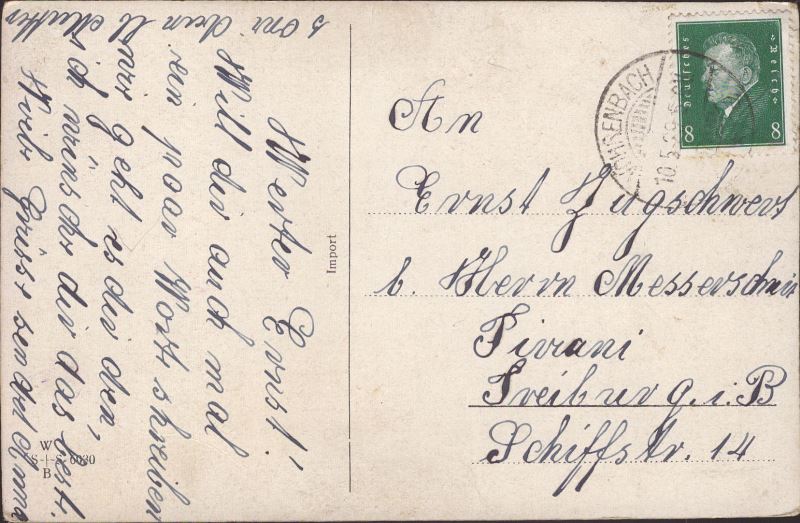 Werter Ernst!
Will dir auch mal
ein paar Wort schreiben
wie geht es dir den,
ich wünschr dir das best.
Viele Grüsse sendet Anna
Import
W
S+S 6030
B
Deutsches Reich
8 8
10.5.29
An
Ernst Zugschwert
b. Herrn Messerschmit
Pivani
Freiburg i. B
Schiffstr. 14